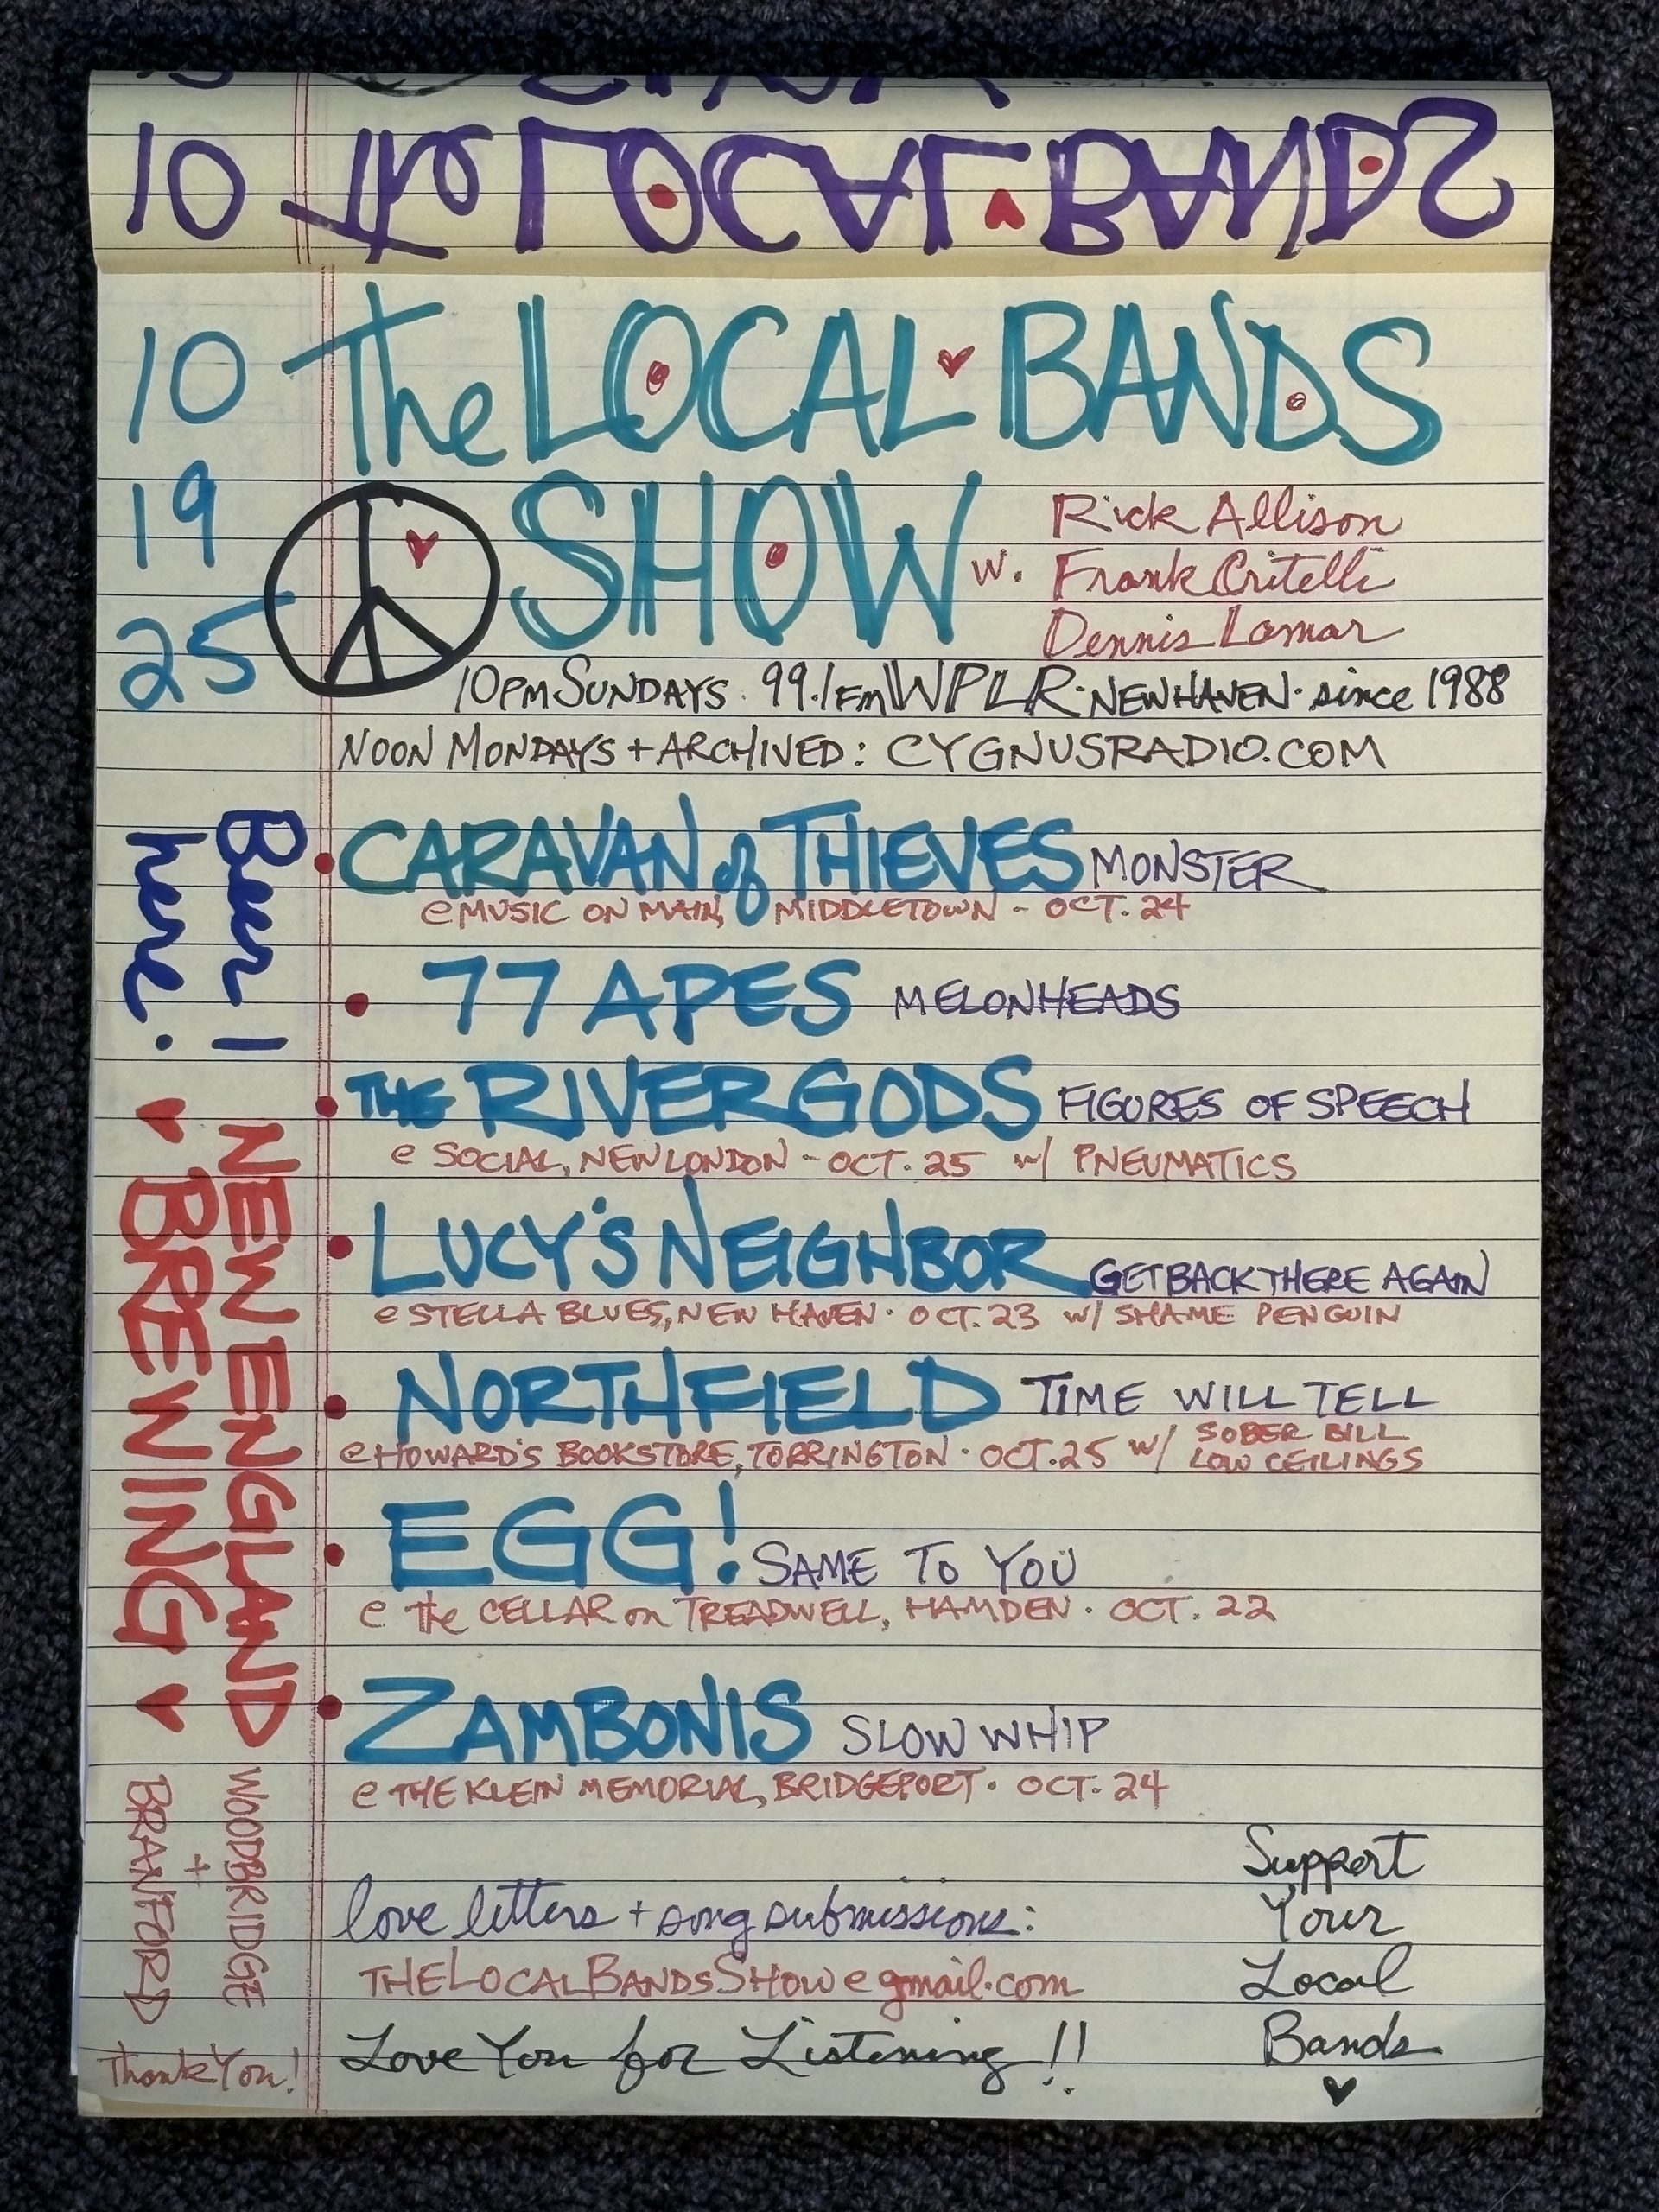 10 The LOCAL BANDS
10 The LOCAL BANDS
19 SHOW w. Rick Allison
Frank Critelli
25 Dennis Lamar
10PM SUNDAYS · 99.1FM WPLR · NEW HAVEN · since 1988
NOON MONDAYS + ARCHIVED: CYGNUSRADIO.COM
• CARAVAN of THIEVES MONSTER
@ MUSIC ON MAIN, MIDDLETOWN - OCT. 24
• 77 APES MELONHEADS
• THE RIVERGODS FIGURES OF SPEECH
@ SOCIAL, NEW LONDON - OCT. 25 w/ PNEUMATICS
• LUCY'S NEIGHBOR GET BACK THERE AGAIN
@ STELLA BLUES, NEW HAVEN · OCT. 23 w/ SHAME PENGUIN
• NORTHFIELD TIME WILL TELL
@ HOWARD'S BOOKSTORE, TORRINGTON · OCT. 25 w/ SOBER BILL
LOW CEILINGS
• EGG! SAME TO YOU
@ the CELLAR on TREADWELL, HAMDEN · OCT. 22
• ZAMBONIS SLOW WHIP
@ THE KLEIN MEMORIAL, BRIDGEPORT · OCT. 24
love letters + song submissions:
THELOCALBANDSSHOW@gmail.com
Love You for Listening!!
Support
Your
Local
Bands
♥
Beer!
here:
NEW ENGLAND
♥ BREWING ♥
WOODBRIDGE
+
BRANFORD
Thank You!